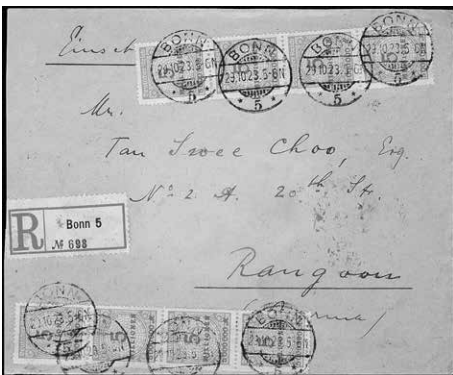 Einsch
BONN
29.10.23.5-6N
5
BONN
29.10.23.5-6N
5
BONN
29.10.23.
5
BONN
29.10.23.5-6N
5
Mr.
Tan Swee Choo, Esq.
No 2 A. 20th St.
R Bonn 5
№ 698
Rangoon
(Burma)
BONN
29.10.23.5-6N
BONN
5
BONN
5
BONN
5
MILLIONEN